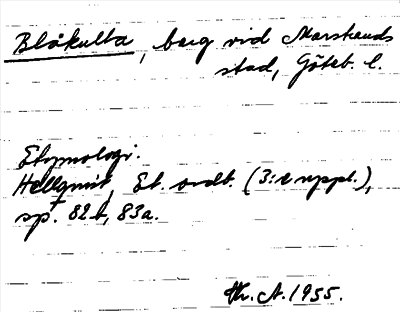 Blåkulla, berg vid Marstrands
stad, Göteb. l.
Etymologi.
Hellquist, Et. ordb. (3:e uppl.),
sp. 82 b, 83a.
1955.